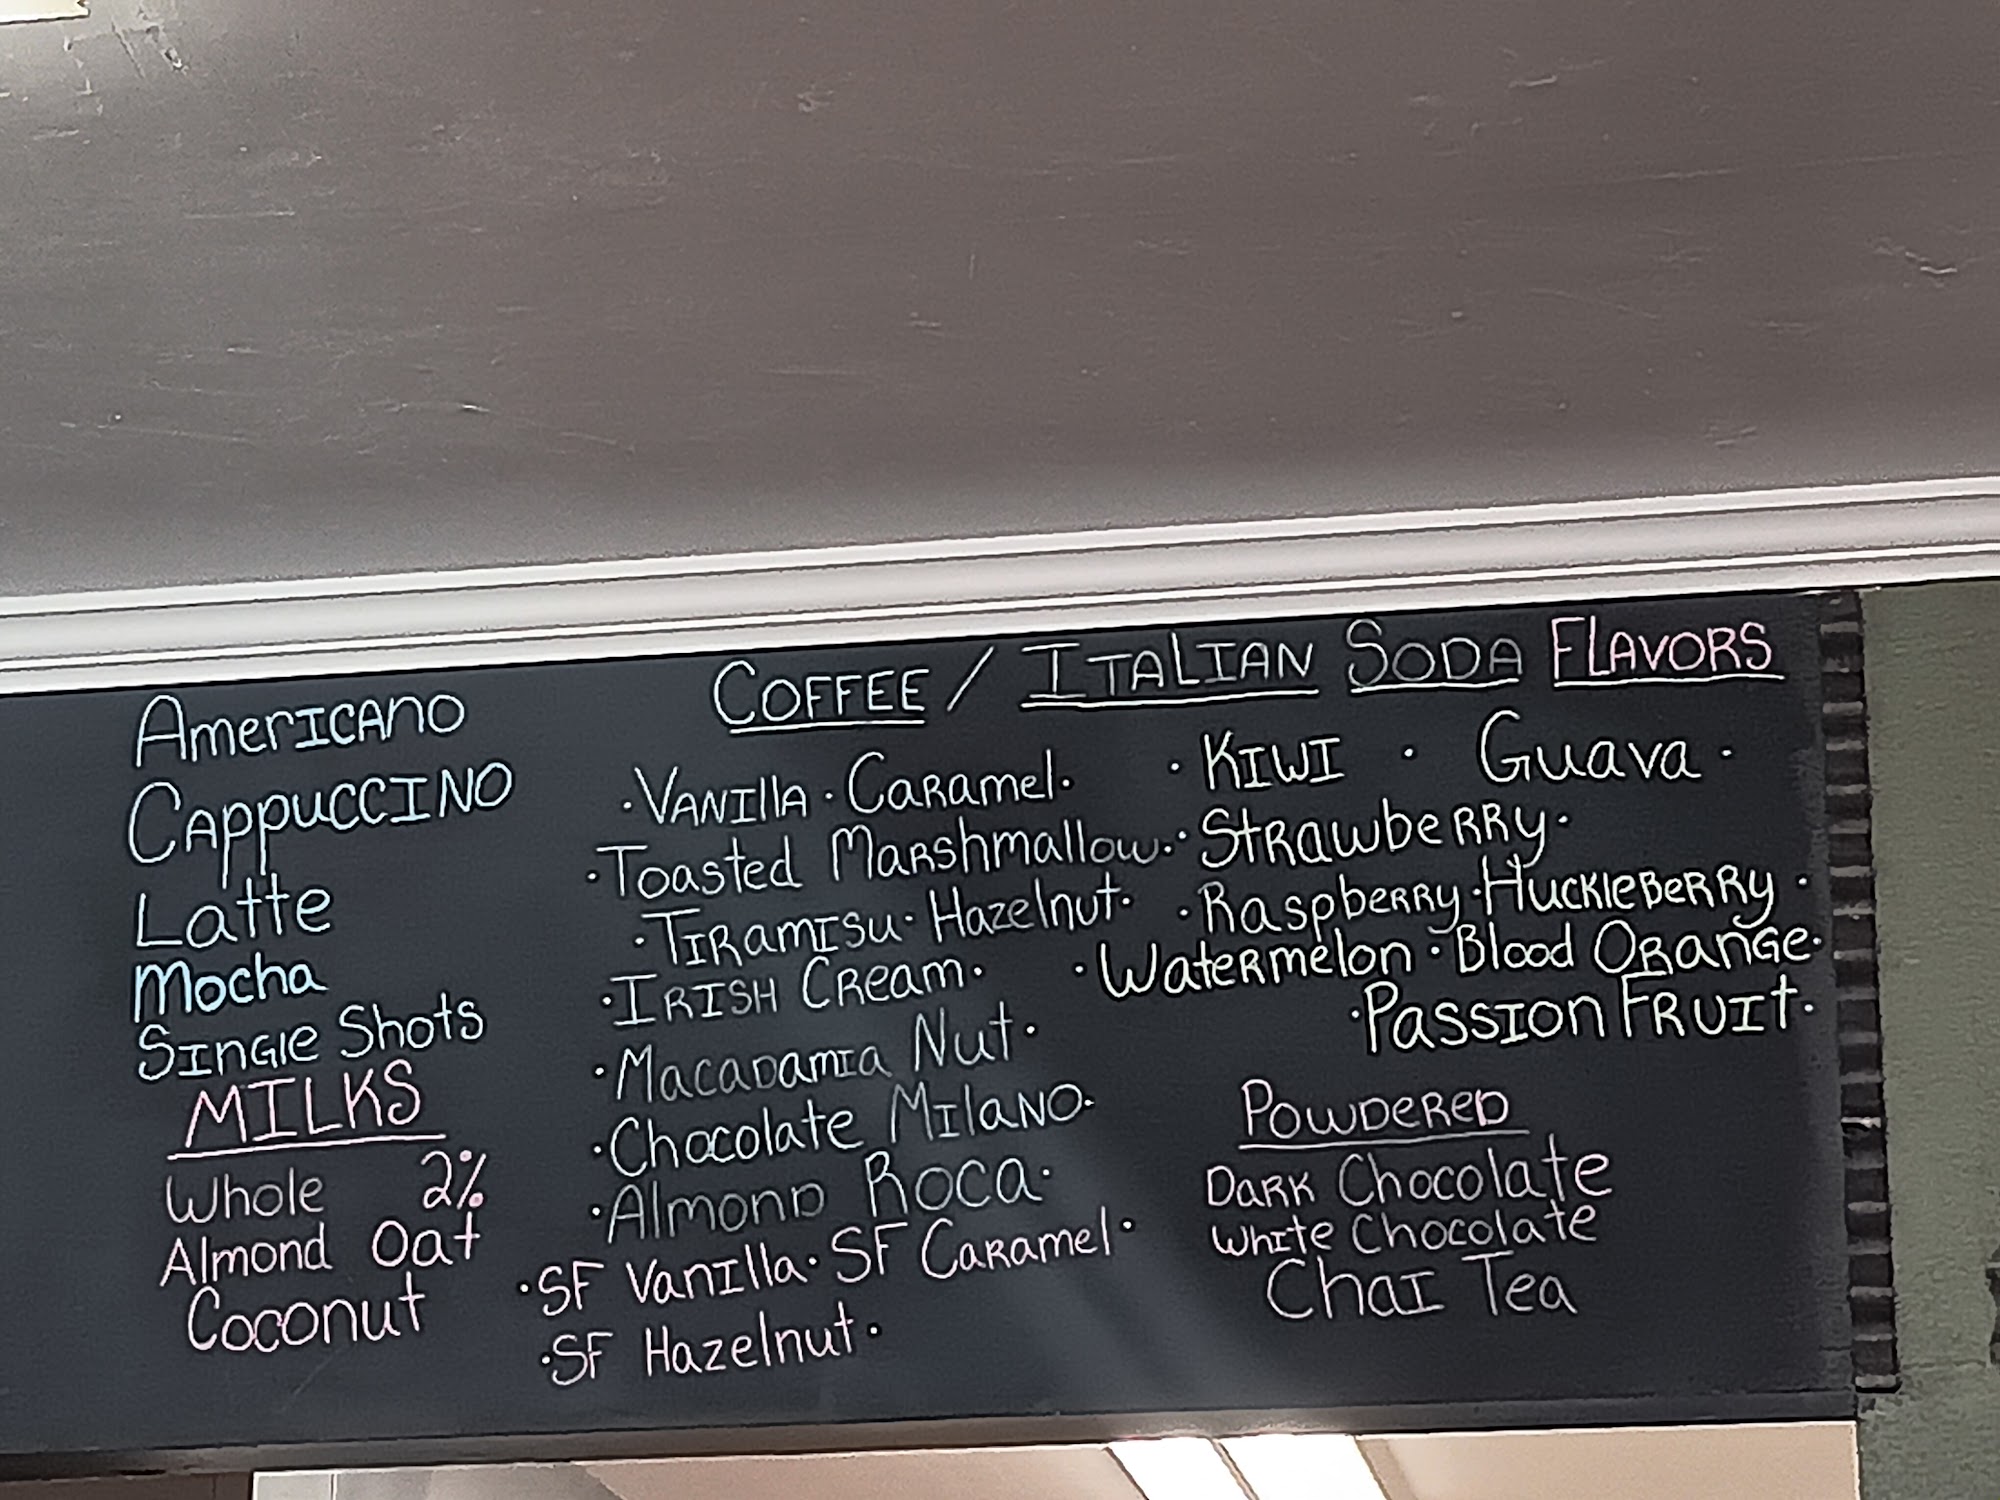 Americano
Cappuccino
Latte
Mocha
Single Shots
MILKS
Whole 2%
Almond Oat
Coconut
COFFEE / ITALIAN SODA FLAVORS
·Vanilla·Caramel·
·Toasted Marshmallow·
·Tiramisu·Hazelnut·
·Irish Cream·
·Macadamia Nut·
·Chocolate Milano·
·Almond Roca·
·SF Vanilla·SF Caramel·
·SF Hazelnut·
·Kiwi · Guava·
·Strawberry·
·Raspberry·Huckleberry·
·Watermelon·Blood Orange·
·Passion Fruit·
POWDERED
Dark Chocolate
White Chocolate
Chai Tea